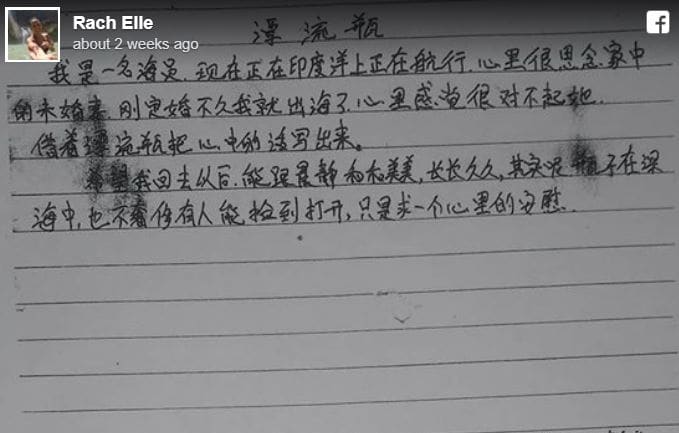 Rach Elle
about 2 weeks ago
漂流瓶
我是一名海员，现在正在印度洋上正在航行，心里很思念家中
的未婚妻，刚定婚不久我就出海了，心里感觉很对不起她，
借着漂流瓶把心中的话写出来。
希望我回去以后，能跟景静和和美美，长长久久，其实 瓶子在深
海中，也不奢 有人能捡到打开，只是求一个心里的安慰。